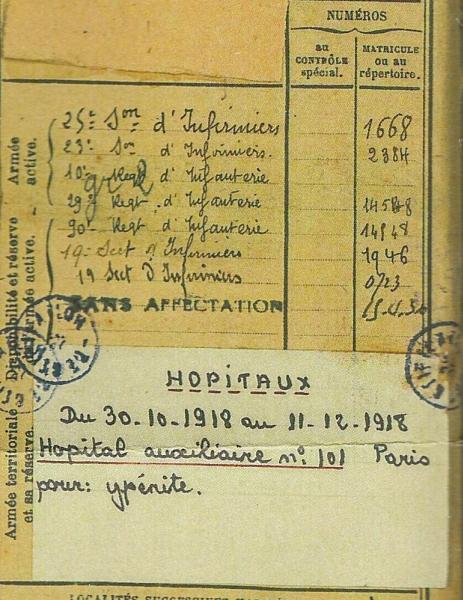 NUMÉROS
au
CONTRÔLE
spécial.
MATRICULE
ou au
répertoire.
Armée
active.
Disponibilité et réserve
Armée territoriale
et sa réserve.
25e Son d'Infirmiers 1668
23e Son d'Infirmiers. 2384
10e Regt d'Infanterie
29e Regt d'Infanterie
90e Regt d'Infanterie 14848
19e Sect d'Infirmiers 1946
19 Sect D Infirmiers
SANS AFFECTATION
HOPITAUX
Du 30-10-1918 au 11-12-1918
Hopital auxiliaire n° 101 Paris
pour: ypérite.